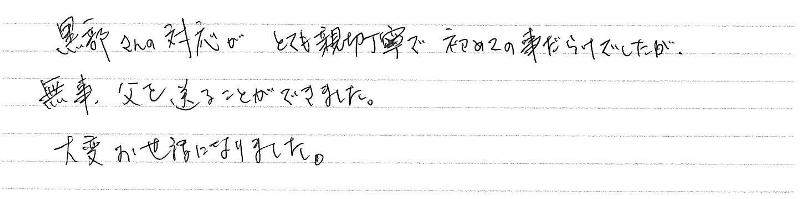 黒部さんの対応が とても親切丁寧で 初めての事だらけでしたが、
無事、父を送ることができました。
大変お世話になりました。